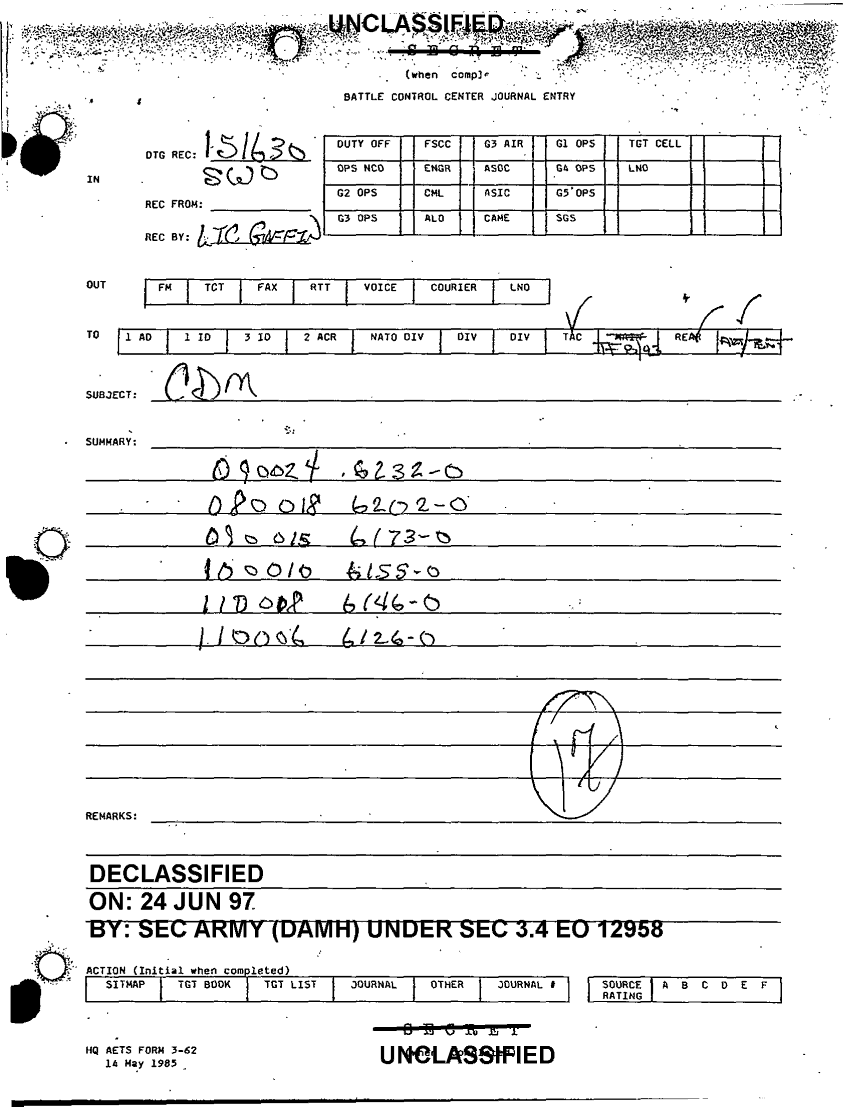 UNCLASSIFIED
SECRET
(when comple
BATTLE CONTROL CENTER JOURNAL ENTRY
IN
DTG REC: 151630
SWO
REC FROM:
REC BY: LTC GAFFIN
DUTY OFF FSCC G3 AIR G1 OPS TGT CELL
OPS NCO ENGR ASOC G4 OPS LNO
G2 OPS CML ASIC G5 OPS
G3 OPS ALO CAME SGS
OUT FM TCT FAX RTT VOICE COURIER LNO
TO 1 AD 1 ID 3 ID 2 ACR NATO DIV DIV DIV TAC MAIN REAR
TF 8/43
SUBJECT: CDM
SUMMARY:
090024 6232-0
080018 6202-0
090015 6173-0
100010 6155-0
110008 6146-0
110006 6126-0
17
REMARKS:
DECLASSIFIED
ON: 24 JUN 97
BY: SEC ARMY (DAMH) UNDER SEC 3.4 EO 12958
ACTION (Initial when completed)
SITMAP TGT BOOK TGT LIST JOURNAL OTHER JOURNAL # SOURCE RATING A B C D E F
SECRET
HQ AETS FORM 3-62
14 May 1985
UNCLASSIFIED